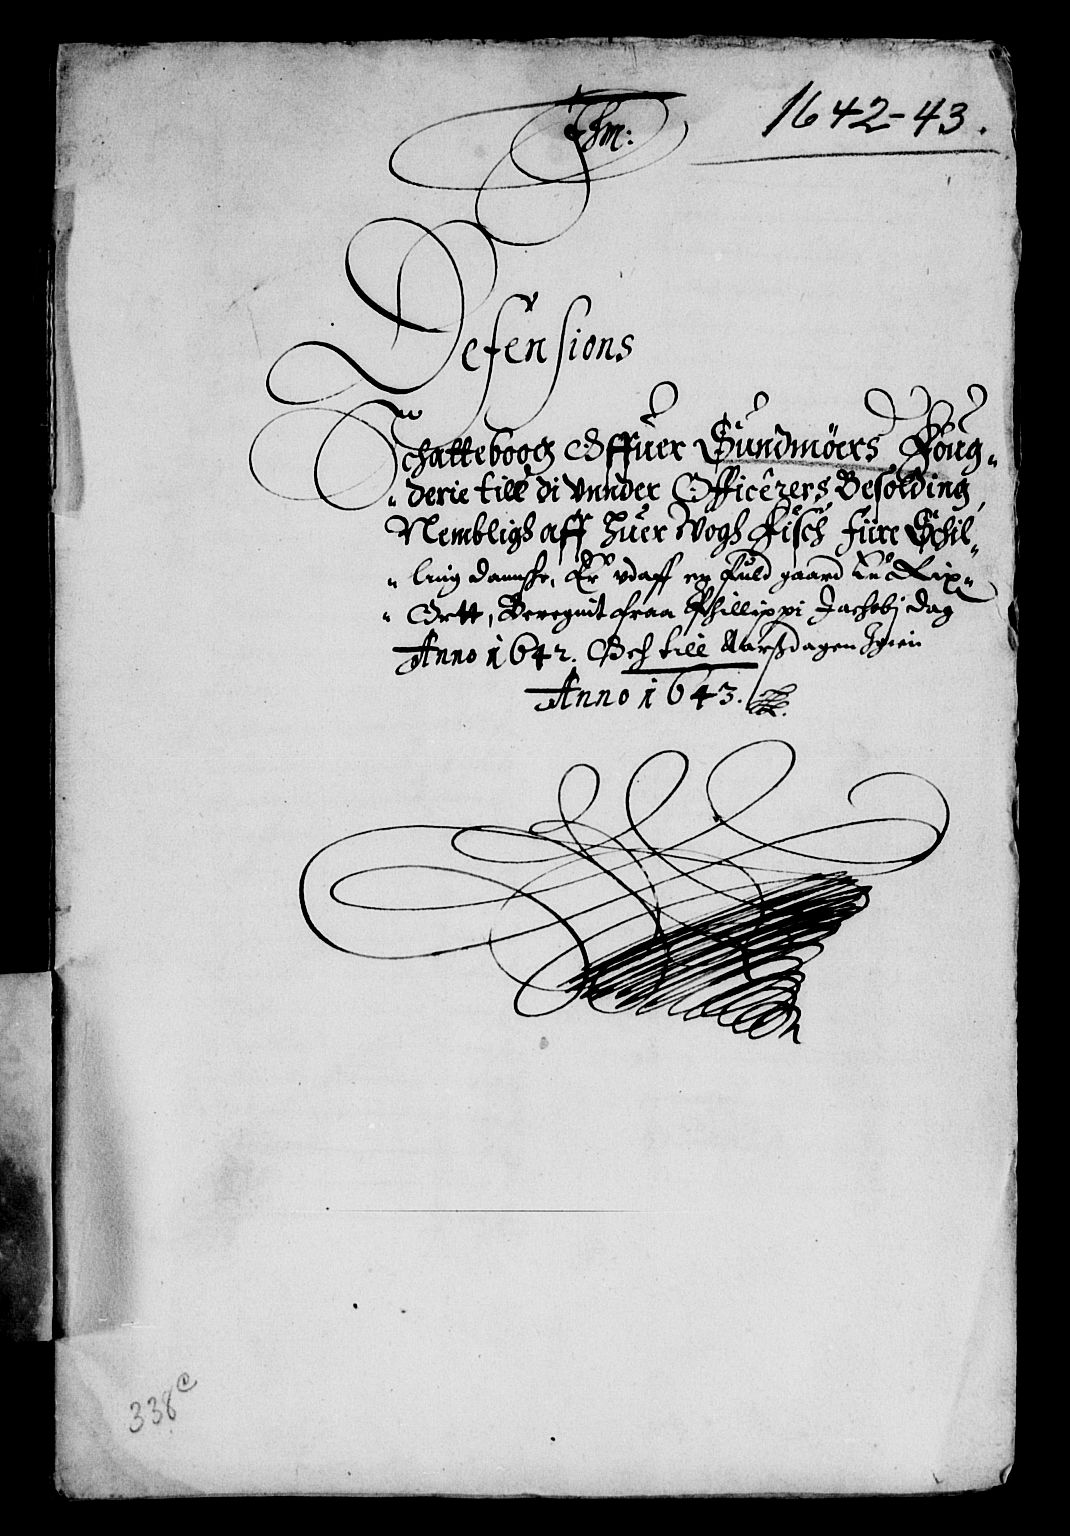 1642-43.
Jhm:
Defensions
Schatteboogh Offuer Sundmörs Foug-
derie till di Vnnder Officerers Besolding
Nembligh aff huer Wogh Fisch füre Schil-
ling dannshe, Er vdaff en Fuld gaard Rix-
Ortt, Beregnit fraa Phillippi Jachobj dag
Anno 1642. Och till Aarßdagen Igien
Anno 1643.
338c